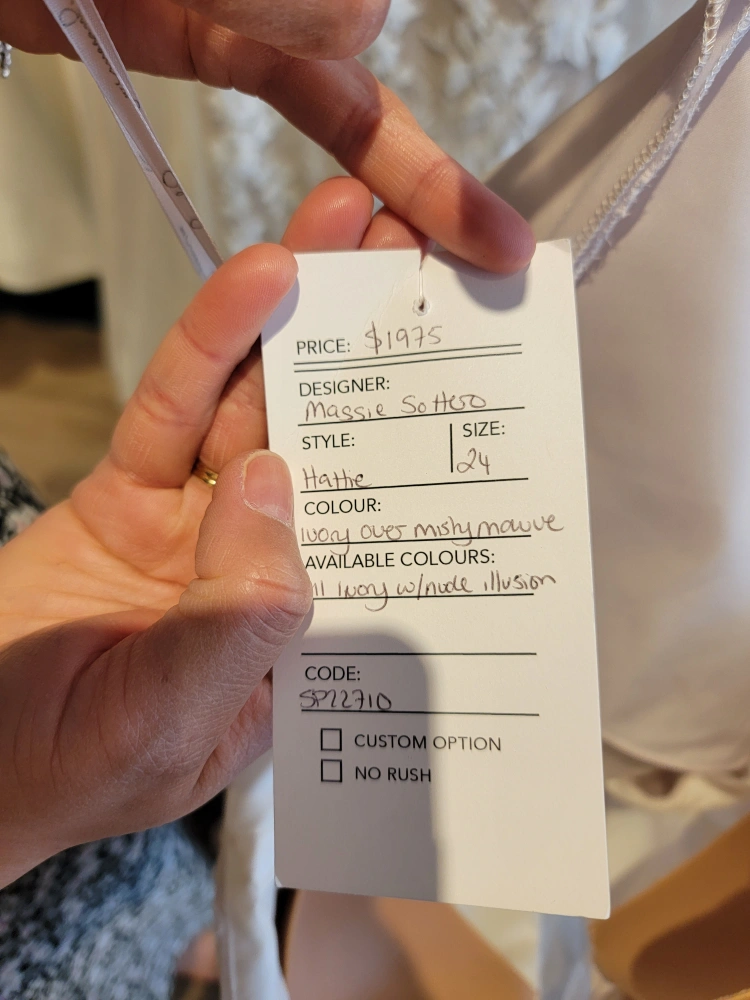 PRICE: $1975
DESIGNER:
Maggie Sottero
STYLE: SIZE:
Hattie 24
COLOUR:
Ivory over misty mauve
AVAILABLE COLOURS:
ll Ivory w/nude illusion
CODE:
SP22710
CUSTOM OPTION
NO RUSH